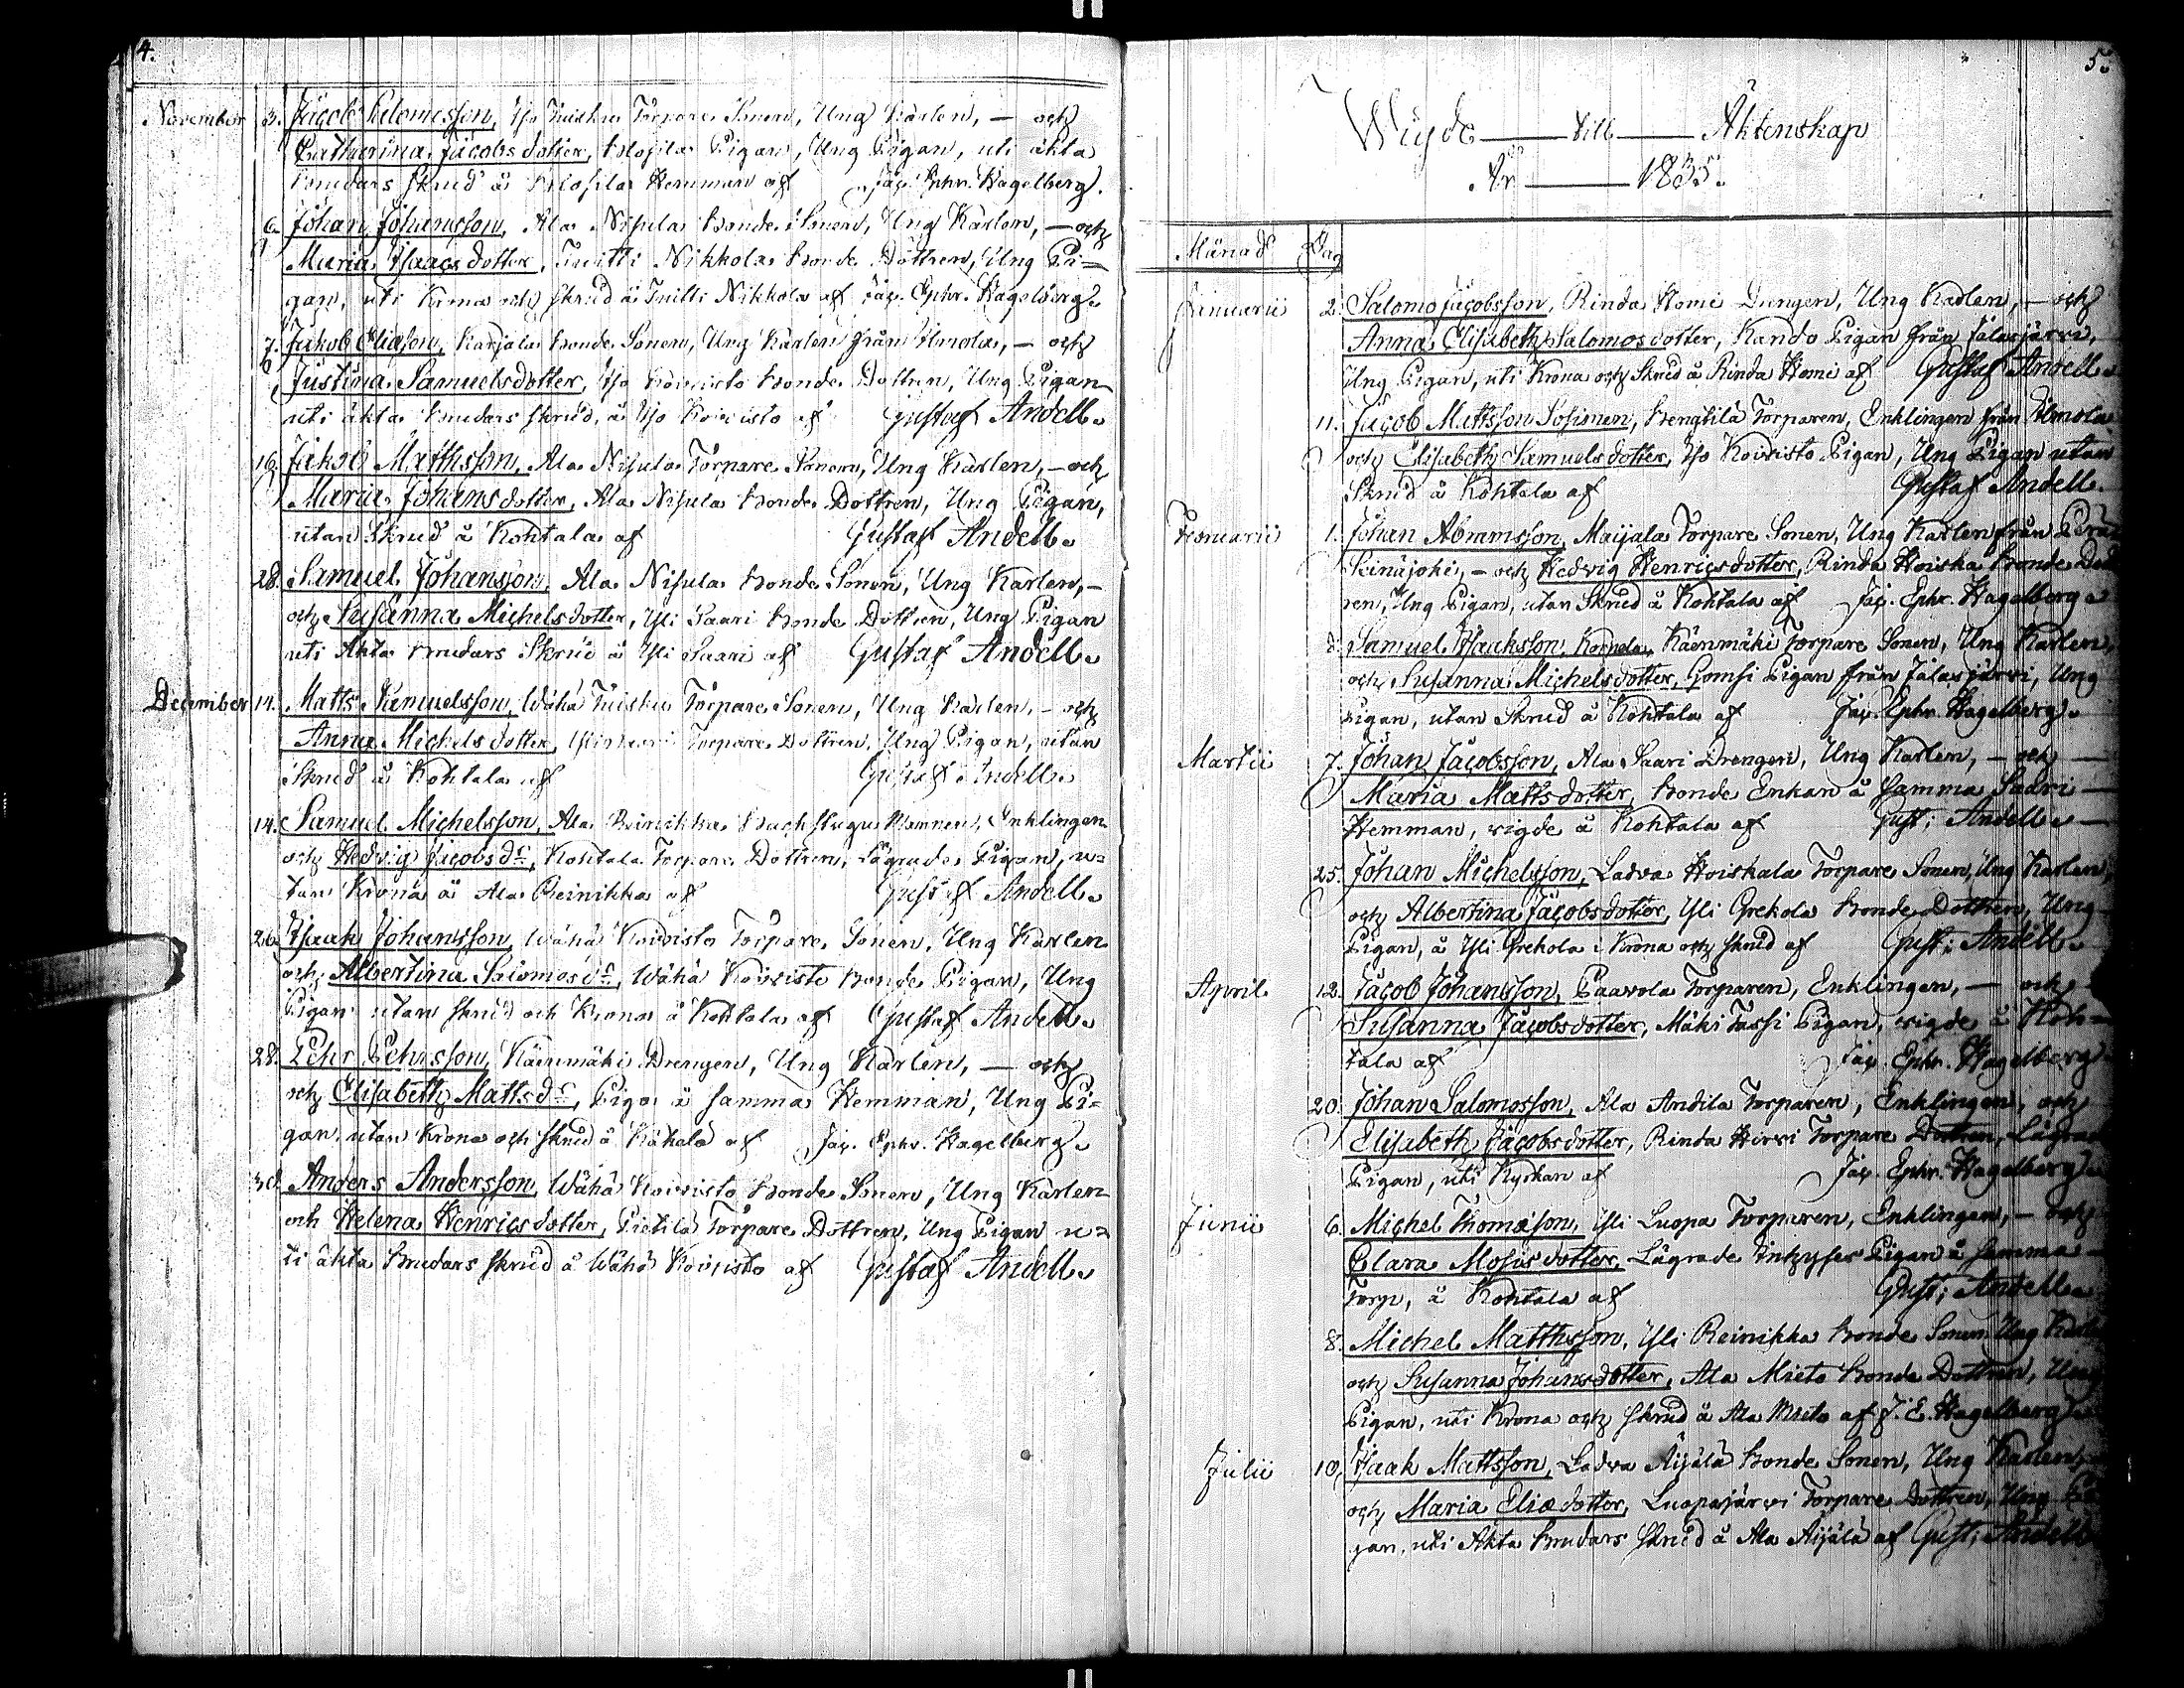 4.
November 3. Jacob Salomosson, Iso Tuisku Torpare Sonen, Ung Karlen, — och
Catharina Jacobsdotter, Pigan, Ung Pigan, uti äkta
Brudars skrud å Hemman af Jac. Ephr. Hagelberg.
6. Johan Johansson, Ala Nisula Bonde Sonen, Ung Karlen, — och
Maria Isaacsdotter, Tuitti Nikkola Bonde Dottren, Ung Pi=
gan, uti Krona och skrud å Tuitti Nikkola af Jac. Ephr. Hagelberg.
7. Jakob Eliasson, Karjala Bonde Sonen, Ung Karlen från Ilmola, — och
Justina Samuelsdotter, Iso Koivisto Bonde Dottren, Ung Pigan
uti äkta Brudars skrud, å Iso Koivisto af Gustaf Andell.
16. Jakob Matthsson, Ala Nisula Torpare Sonen, Ung Karlen, — och
Maria Johansdotter, Ala Nisula Bonde Dottren, Ung Pigan,
utan Skrud å Kohtala af Gustaf Andell.
28. Samuel Johansson, Ala Nisula Bonde Sonen, Ung Karlen, —
och Susanna Michelsdotter, Yli Saari Bonde Dottren, Ung Pigan
uti Äkta Brudars Skrud å Yli Saari af Gustaf Andell.
December 14. Matts Samuelsson, Wähä Tuisku Torpare Sonen, Ung Karlen, — och
Anna Michelsdotter, Torpare Dottren, Ung Pigan, utan
Skrud å Kohtala af Gustaf Andell.
14. Samuel Michelsson, Ala Reinikka Backstugu Mannen, Enklingen
och Hedvig Jacobsdr, Kohtala Torpare Dottren, Lägrade Pigan, u=
tan Krona å Ala Reinikka af Gustaf Andell.
26. Isaak Johansson, Wähä Koivisto Torpare Sonen, Ung Karlen
och Albertina Salomosdr, Wähä Koivisto Bonde Pigan, Ung
Pigan utan skrud och Krona å Kohtala af Gustaf Andell.
28. Pehr Pehrsson, Käenmäki Drengen, Ung Karlen, — och
och Elisabeth Mattsdr, Piga å samma Hemman, Ung Pi=
gan, utan Krona och skrud å Kåkela af Jac. Ephr. Hagelberg.
30. Anders Andersson, Wähä Koivisto Bonde Sonen, Ung Karlen
och Helena Henricsdotter, Pietilä Torpare Dottren, Ung Pigan u=
ti äkta Brudars skrud å Wähä Koivisto af Gustaf Andell.
5.
Wigde — till — Äktenskap
År — 1835.
Månad Dag
Januarii 2. Salomo Jacobsson, Rinda Homi Drengen, Ung Karlen, — och
Anna Elisabeth Salomosdotter, Rando Pigan från Jalasjärvi,
Ung Pigan, uti Krona och Skrud å Rinda Homi af Gustaf Andell.
11. Jacob Mattsson Sosimen, Bengtilä Torparen, Enklingen från Ilmola
och Elisabeth Samuelsdotter, Iso Koivisto Pigan, Ung Pigan utan
Skrud å Kohtala af Gustaf Andell.
Februarii 1. Johan Abramsson, Maijala Torpare Sonen, Ung Karlen från
Seinäjoki, — och Hedvig Henricsdotter, Rinda Hoiska Bonde
ren, Ung Pigan, utan Skrud å Kohtala af Jac. Ephr. Hagelberg.
8. Samuel Isaaksson, Käenmäki Torpare Sonen, Ung Karlen,
och Susanna Michelsdotter, Gomsi Pigan från Jalasjärvi, Ung
Pigan, utan Skrud å Kohtala af Jac. Ephr. Hagelberg.
Martii 7. Johan Jacobsson, Ala Saari Drengen, Ung Karlen, — och —
Maria Mattsdotter, Bonde Enkan å samma Saari —
Hemman, vigde å Kohtala af Gust: Andell. —
25. Johan Michelsson, Ladva Hoiskala Torpare Sonen, Ung Karlen,
och Albertina Jacobsdotter, Yli Grekola Bonde Dottren, Ung
Pigan, å Yli Grekola i Krona och skrud af Gust: Andell.
April 12. Jacob Johansson, Paavola Torparen, Enklingen, — och
Susanna Jacobsdotter, Mäki Tassi Pigan, vigde å Koh-
tala af Jac. Ephr. Hagelberg
20. Johan Salomosson, Ala Andila Torparen, Enklingen, och
Elisabeth Jacobsdotter, Rinda Hirvi Torpare Dottren, Lägrade
Pigan, uti Kyrkan af Jac. Ephr. Hagelberg.
Junii 6. Michel Thomason, Yli Luopa Torparen, Enklingen, — och
Clara Mosisdotter, Lägrade Inhyses Pigan å samma
Torp, å Kohtala af Gust; Andell.
8. Michel Matthsson, Yli Reinikka Bonde Sonen Ung
och Susanna Johansdotter, Ala Mieto Bonde Dottren, Ung
Pigan, uti Krona och skrud å Ala Mieto af J. E. Hagelberg
Julii 10. Isaak Mattsson, Ladva Äijälä Bonde Sonen, Ung Karlen,
och Maria Eliædotter, Luopajärvi Torpare Dottren, Ung Pi
gan, uti Äkta Brudars skrud å Ala Äijälä af Gust; Andell